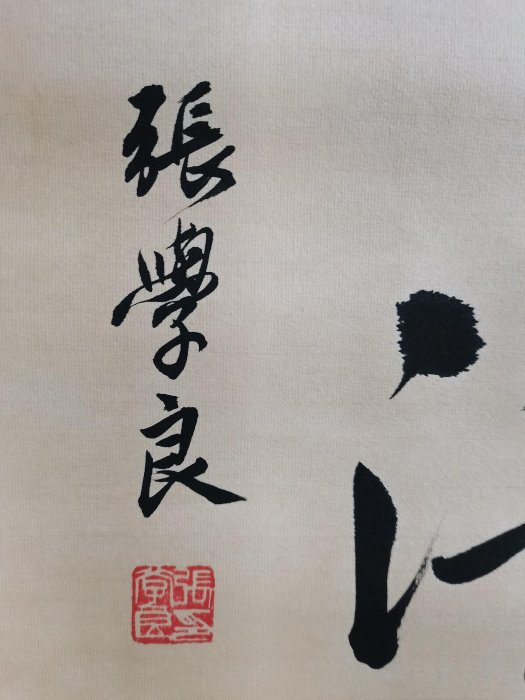 張學良
張印
學良